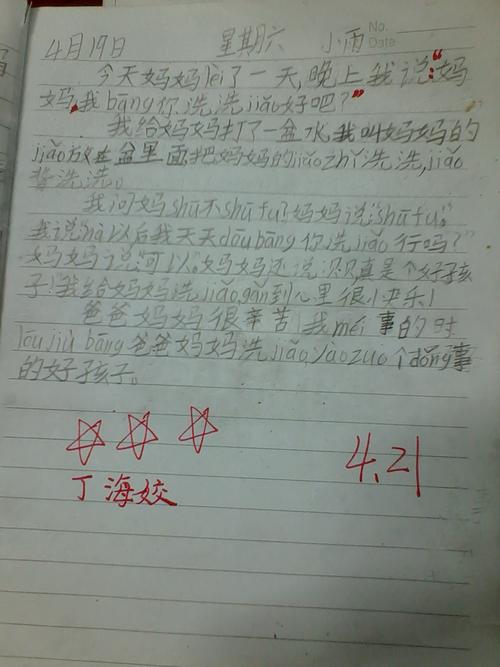 No.
4月19日 星期六 小雨 Date
今天妈妈lèi了一天,晚上我说:“妈
妈,我bāng你洗洗jiǎo好吧?”
我给妈妈打了一盆水,我叫妈妈的
jiǎo放在盆里面,把妈妈的jiǎo zhǐ洗洗,jiǎo
背洗洗。
我问妈shū不shū fu?妈妈说“shū fu。”
我说“nà以后我天天dōu bāng你洗jiǎo行吗?”
妈妈说“可以。”妈妈还说:贝贝真是个好孩
子!我给妈妈洗jiǎo,gǎn到心里很快乐!
爸爸妈妈很辛苦,我méi事的时
hòu jiù bāng爸爸妈妈洗jiǎo,yào zuò个dǒng事
的好孩子。
丁海姣 4.21